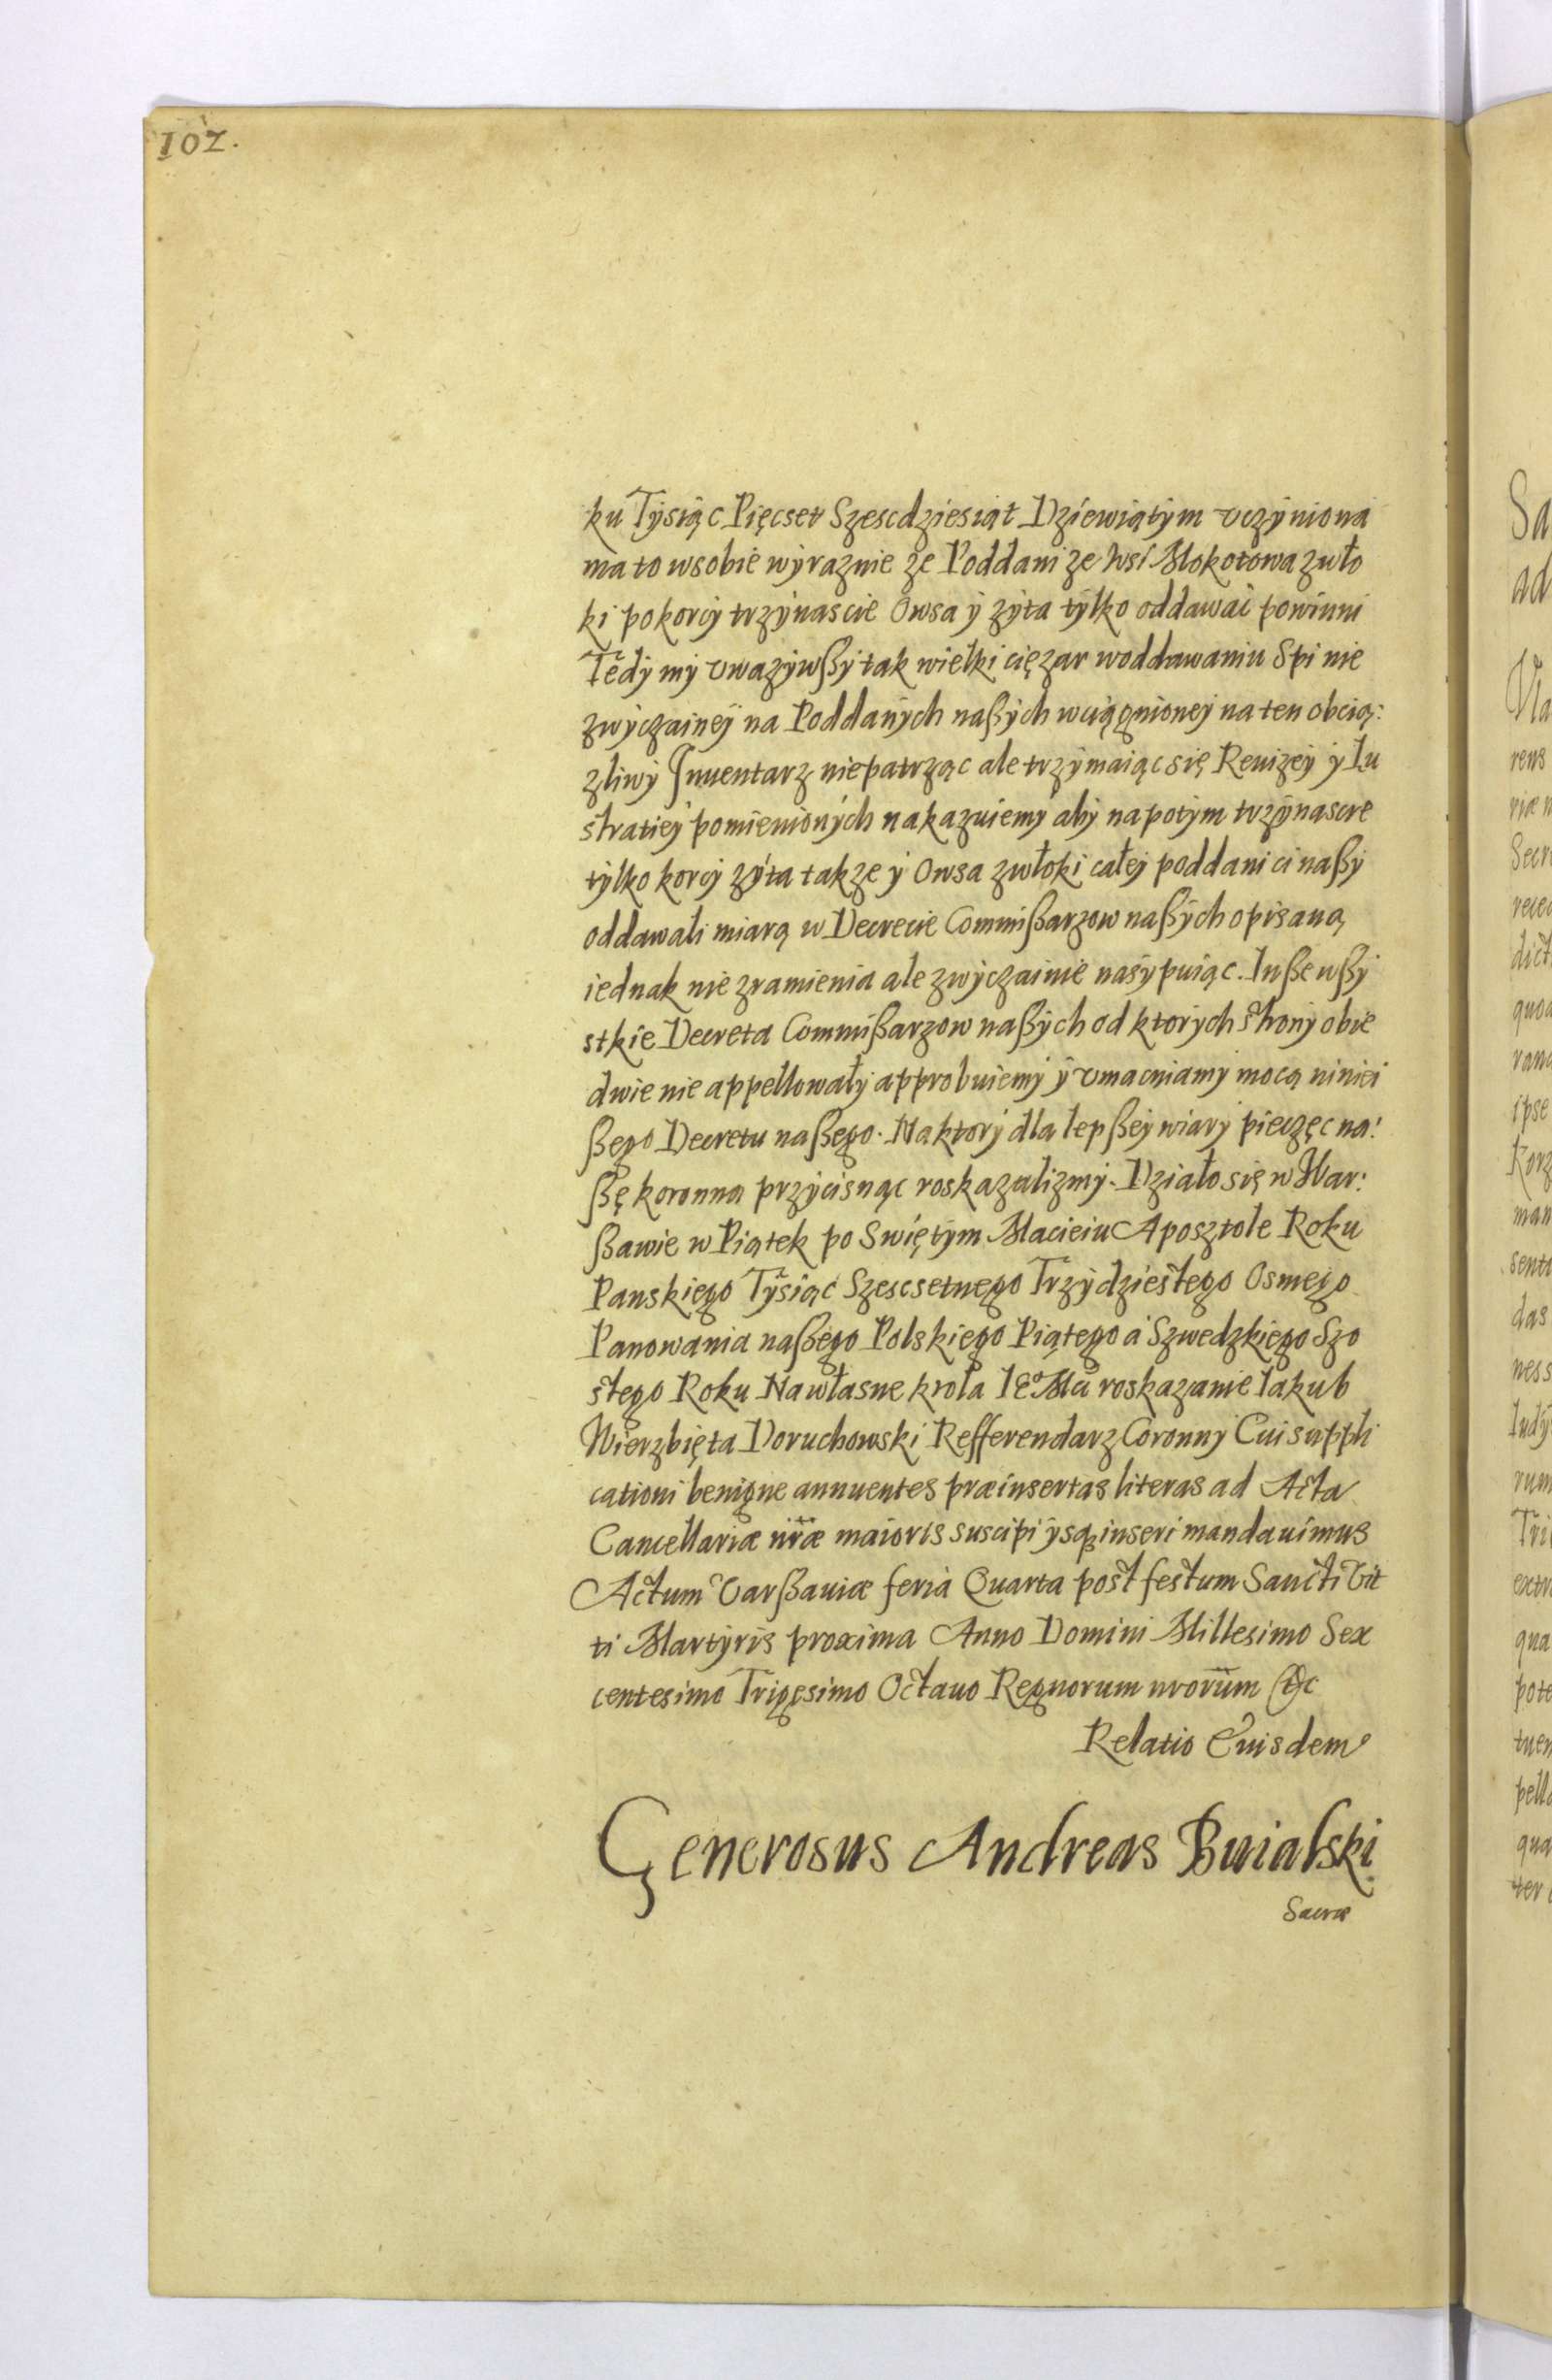 102.
ku Tysiąc Pięcset Szescdziesiąt Dziewiątym vczyniona
ma to wsobie wyraznie ze Poddani ze wsi Mokotowa zwło
ki po korcy trzynascie Owsa y zyta tylko oddawać powinni
Tedy my vwazywßy tak wielki cięzar woddawaniu Spi nie
zwyczainey na Poddanych naßych wciągnioney na ten obcią:
zliwy Inuentarz niepatrząc ale trzymaiąc się Reuizey y Lu
stratiey pomienionych nakazuiemy aby napotym trzynascie
tylko korcy zyta takze y Owsa zwłoki całey poddani ci naßy
oddawali miarą w Decrecie Commißarzow naßych opisaną
iednak nie zramienia ale zwyczainie nasypuiąc. Inße wßy
stkie Decreta Commißarzow naßych od ktorych strony obie
dwie nie appellowały approbuiemy y vmacniamy mocą niniei
ßego Decretu naßego. Na ktory dla lepßey wiary pieczęc na:
ßę koronna przycisnąc roskazalizmy. Działo się w War:
ßawie w Piątek po Swiętym Macieiu Aposztole Roku
Panskiego Tysiąc Szescsetnego Trzydziestego Osmego
Panowania naßego Polskiego Piątego a Szwedzkiego Szo
stego Roku Na własne krola IEº Mci roskazanie Iakub
Wierzbięta Doruchowski Refferendarz Coronny Cui suppli
cationi benigne annuentes præinsertas literas ad Acta
Cancellariæ nræ maioris suscipi ysqꝫ inseri mandauimus
Actum Varßauiæ feria Quarta post festum Sancti Vit
ti Martyris proxima Anno Domini Millesimo Sex
centesimo Trigesimo Octauo Regnorum nrorum &c
Relatio Euisdem
Generosus Andreas Buialski
Sacræ